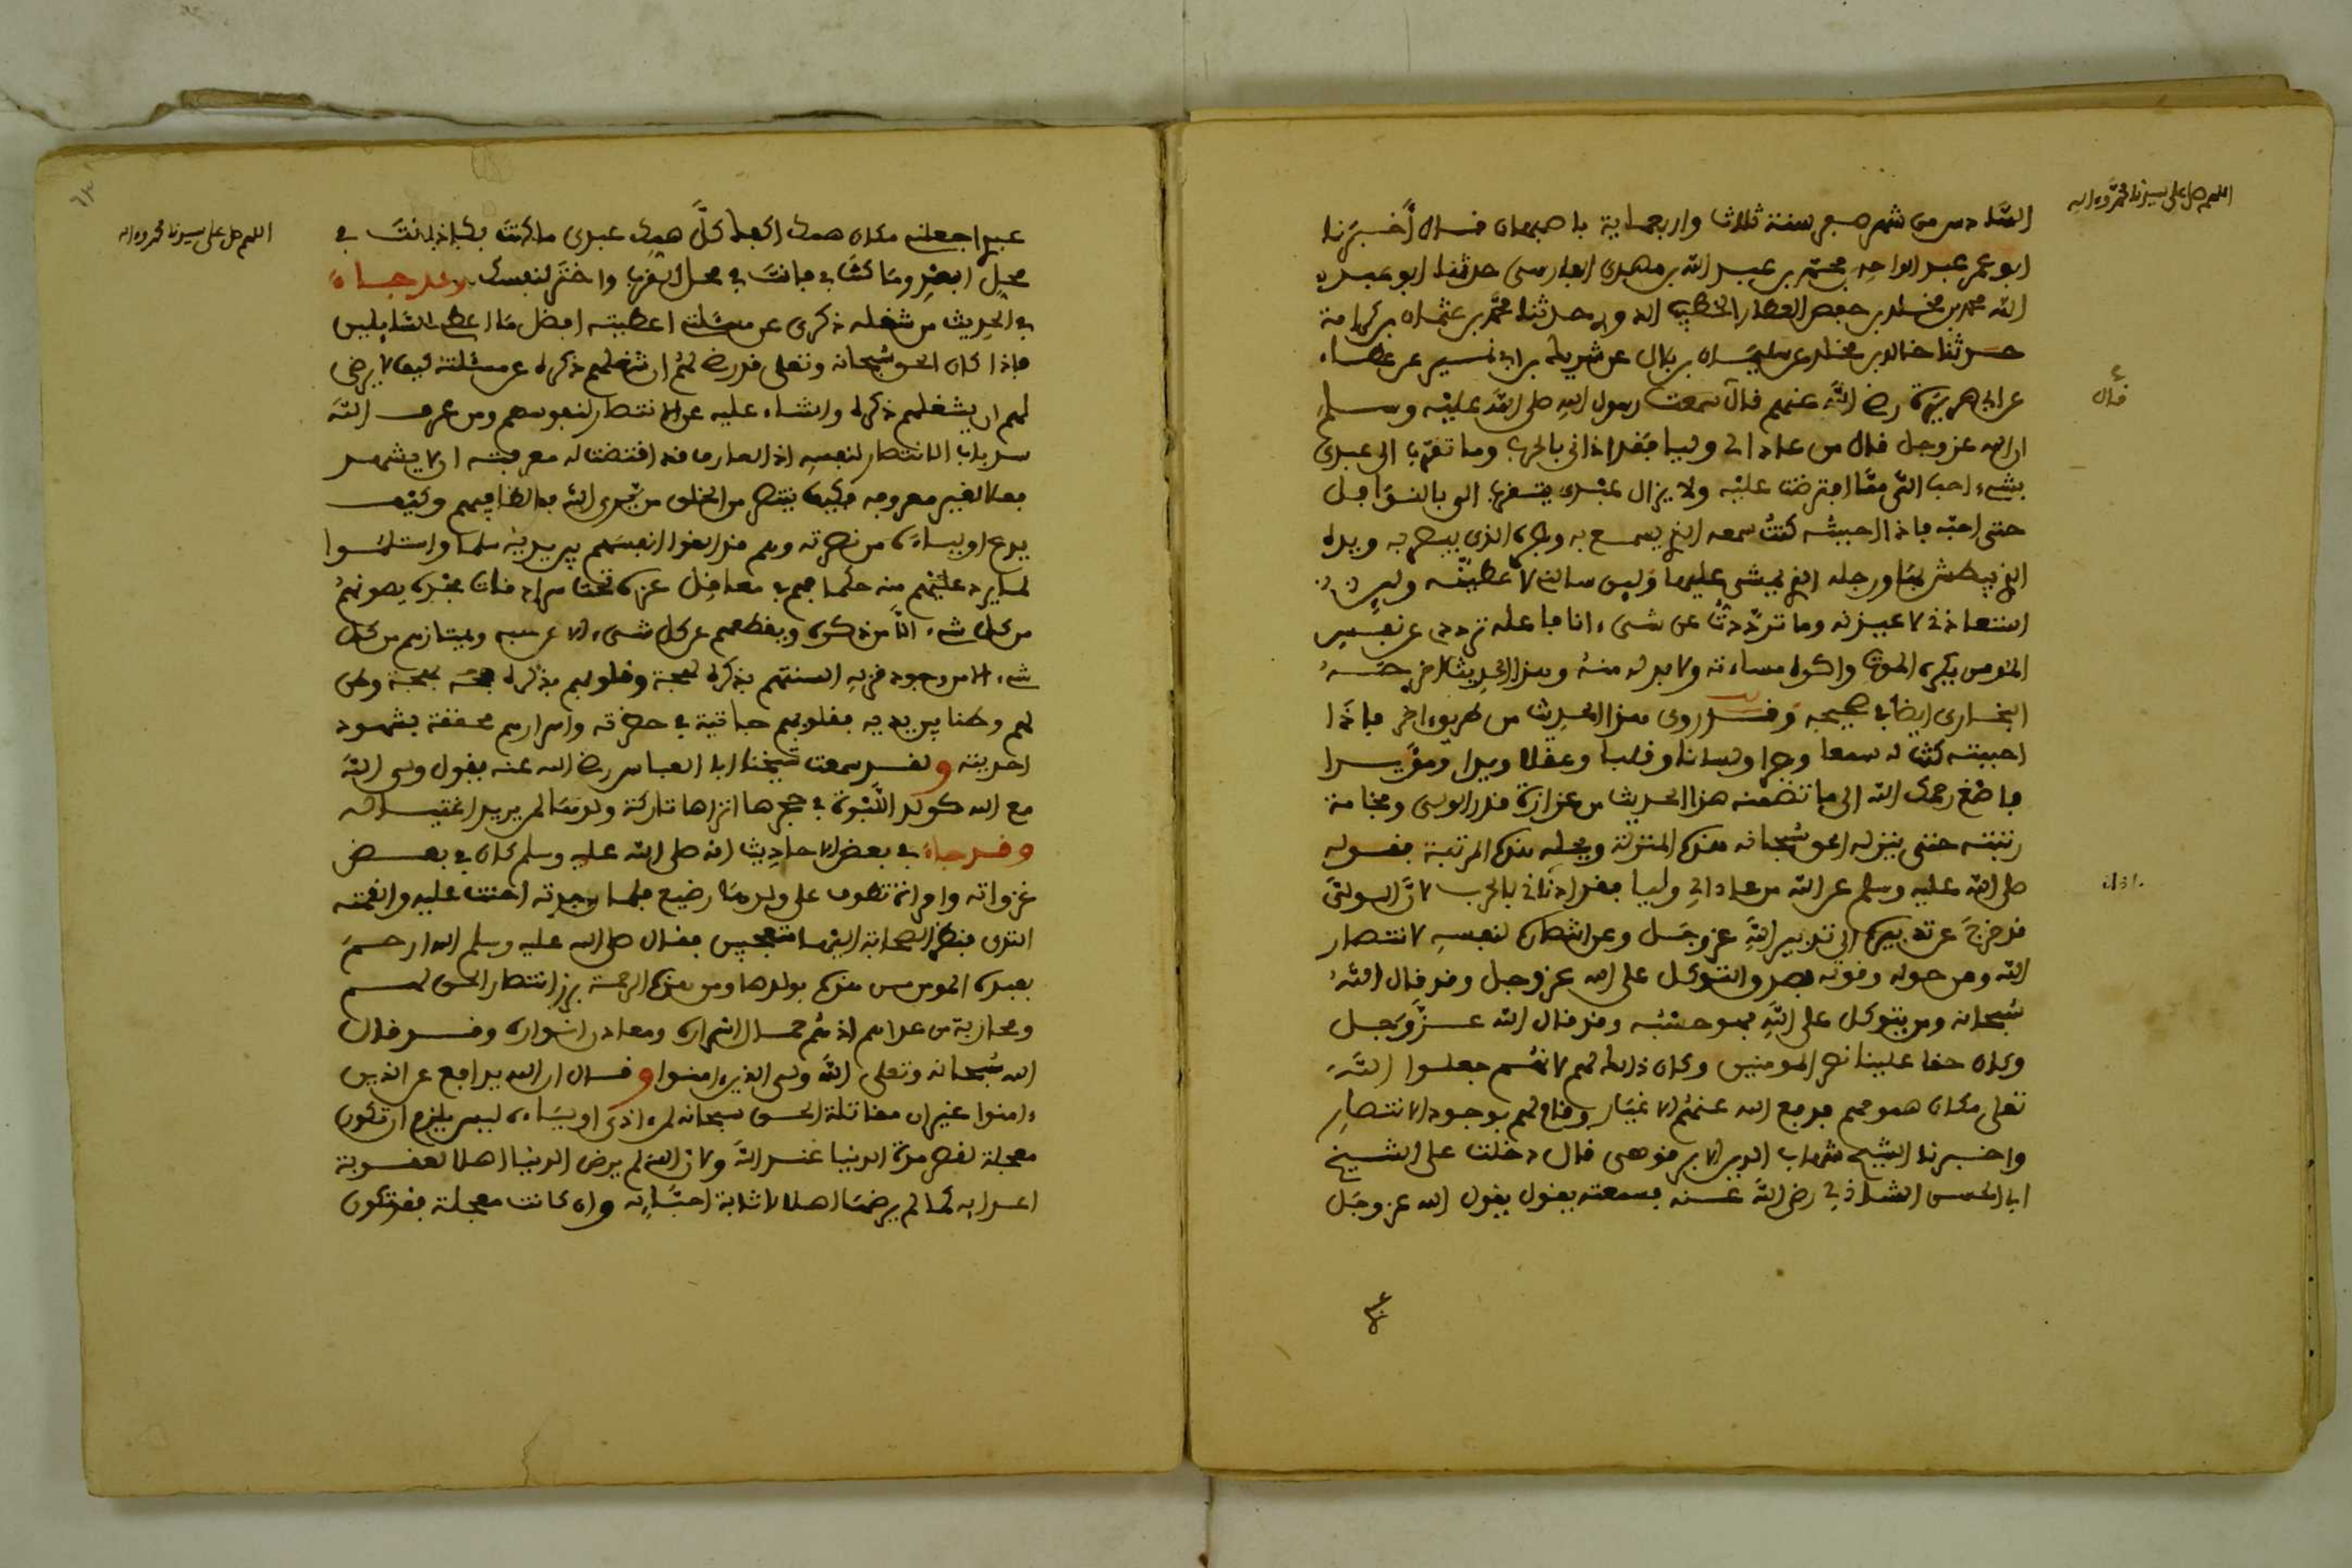 اللهم صل على سيدنا محمد وءاله
السادس من شهر صفر سنة ثلاث واربعماية باصبهان قال أخبرنا
ابو عمر عبد الواحد بن محمد بن عبد الله بن مهدى الفارسى حدثنا ابو عبد
الله محمد بن مخلد بن حفص العطار الخطيب الدورى حدثنا محمد بن عثمان بن كرامة
حدثنا خالد بن مخلد عن سليمان بن بلال عن شريك بن ابى نمير عن عطاء
عن ابى هريرة رضى الله عنهم قال سمعت رسول الله صلى الله عليه وسلم
قال
ان الله عز وجل قال من عادا لى وليا فقد اذانى بالحرب وما تقرب الى عبدى
بشىء احب الى مما افترضت عليه ولا يزال عبدى يتقرب الى بالنوافل
حتى احبه فاذا احببته كنت سمعه الذى يسمع به وبصره الذى يبصر به ويده
الذى يبطش بها ورجله الذى يمشى عليها ولين سالنى لاعطينه ولين
استعاذنى لاعيذنه وما ترددت عن شىء انا فاعله ترددى عن نفس
المومن يكره الموت واكره مساءته ولا بد له منه وهذا الحديث اخرجه
البخارى ايضا فى صحيحه وقد روى هذا الحديث من طريق اخر فاذا
احببته كنت له سمعا وبصرا ولسانا وقلبا وعقلا ويدا ومؤيدا
فاصغ رحمك الله الى ما تضمنه هذا الحديث من غزارة قدر الولى وفخامة
رتبته حتى ينزله الحق سبحانه هذه المنزلة ويحله هذه المرتبة فقوله
صلى الله عليه وسلم عن الله من عادا لى وليا فقد اذانى بالحرب لان الولى
اذن
قد خرج عن تدبيره الى تدبير الله عز وجل وعن انتصاره لنفسه لانتصار
الله وعن حوله وقوته بصدق التوكل على الله عز وجل وقد قال الله
سبحانه ومن يتوكل على الله فهو حسبه وقد قال الله عز وجل
وكان حقا علينا نصر المومنين وكان ذلك لهم لانهم جعلوا الله
تعلى مكان همومهم فدفع الله عنهم الاغيار وقام لهم بوجود الانتصار
واخبرنا الشيخ شهاب الدين الابرقوهى قال دخلت على الشيخ
ابى الحسن الشاذلى رضى الله عنه فسمعته يقول يقول الله عز وجل
اللهم صل على سيدنا محمد وءاله
عبدى اجعلنى مكان همك اكفك كل همك عبدى ما كنت بك فانت فى
محل البعد وما كنت بى فانت فى محل القرب واختر لنفسك وقد جاء
فى الحديث من شغله ذكرى عن مسئلتى اعطيته افضل ما اعطى السايلين
فاذا كان الحق سبحانه وتعلى قد رضى لهم ان شغلهم ذكره عن مسئلته كيف لا يرضى
لهم ان يشغلهم ذكره والثناء عليه عن الانتصار لنفوسهم ومن عرف الله
سد باب الانتصار لنفسه اذ العارف قد اقتضت له معرفته ان لا يشهد
فعلا لغير معروفه فكيف ينتصر من الخلق من يرى الله فعالا فيهم وكيف
يدع اولياءه من نصرته وهم قد القوا انفسهم بين يديه سلما واستسلموا
لما يرد عليهم منه حكما فهم فى معاقل عزه تحت سرادقات مجده يصونهم
من كل شىء الا من ذكره ويقطعهم عن كل شىء الا عن حبه ويمتازهم من كل
شىء الا من وجود قربه السنتهم بذكره لهجة وقلوبهم بذكره بهجة وطن
لهم وطنا بين يديه فقلوبهم جاثية فى حضرته واسرارهم محققة بشهود
احديته ولقد سمعت شيخنا ابا العباس رضى الله عنه يقول ولى الله
مع الله كولد اللبوة فى حجرها اتراها تاركة ولدها لمن يريد اغتياله
وقد جاء فى بعض الاحاديث انه صلى الله عليه وسلم كان فى بعض
غزواته وامراة تطوف على ولد لها رضيع فلما وجدته احنت عليه والقمته
الثدى فنظر الصحابة اليها متعجبين فقال صلى الله عليه وسلم الله ارحم
بعبده المومن من هذه بولدها ومن هذه الرحمة برز انتصار الحق لهم
ومحاربة من عاداهم اذ هم حمال اسراره ومعادن انواره وقد قال
الله سبحانه وتعلى الله ولى الذين ءامنوا وقال ان الله يدافع عن الذين
ءامنوا غير ان مقاتلة الحق سبحانه لمن اذى اولياءه ليس يلزم ان تكون
معجلة لقصر مدة الدنيا عند الله ولان الله لم يرض الدنيا اهلا لعقوبة
اعدايه كما لم يرضها اهلا لاثابة احبابه وان كانت معجلة فقد تكون